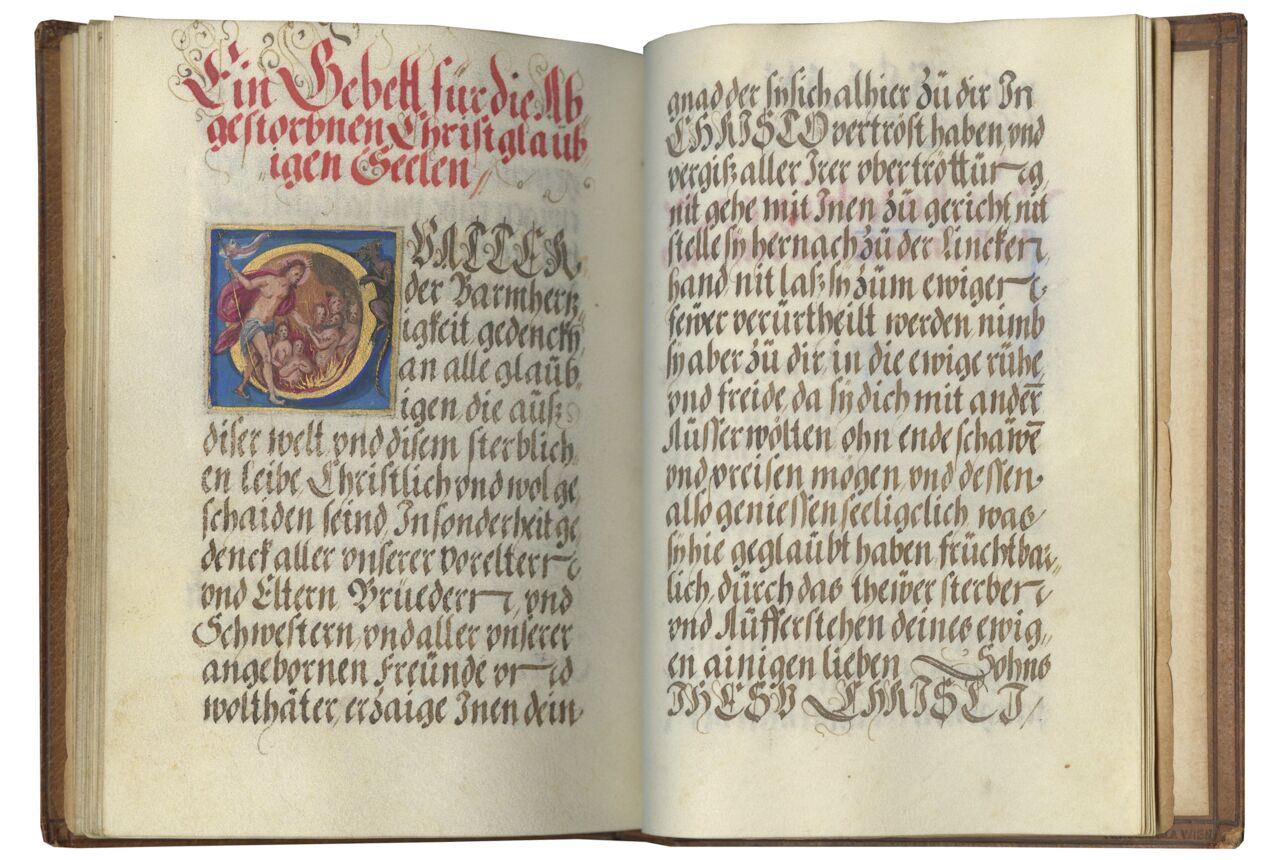 Ein Gebett für die Ab
gestorbnen Christglaüb
igen Seelen
O VATTER
der Barmhertz
igkeit gedenckh
an alle glaüb
igen die aüß
diser welt vnd disem sterblich
en leibe Christlich vnd wol ge
schaiden seind, In sonderheit ge
denck aller vnserer Voreltern
vnd Eltern Brüedern, vnd
Schwestern, vnd aller vnserer
angebornen Freünde vnd
wolthäter, erzaige Inen dein
gnad der sÿ sich alhier zü dir In
CHRISTO vertröst haben, vnd
vergiß aller Irer vbertrettüng
nit gehe mit Inen zü gericht nit
stelle sÿ hernach zü der Lincken
hand nit laß sÿ züm ewigen
feẅer verürtheilt werden nimb
sÿ aber zü dir in die ewige rühe
vnd freide, da sÿ dich mit andern̄
Aüsserwölten ohn ende schaẅē
vnd preisen mögen, vnd dessen
also geniessen seeligclich, was
sÿ hie geglaübt haben früchtbar
lich, dürch das theẅer sterben
vnd Aüfferstehen deines ewig
en ainigen lieben Sohns
IHESV CHRISTI